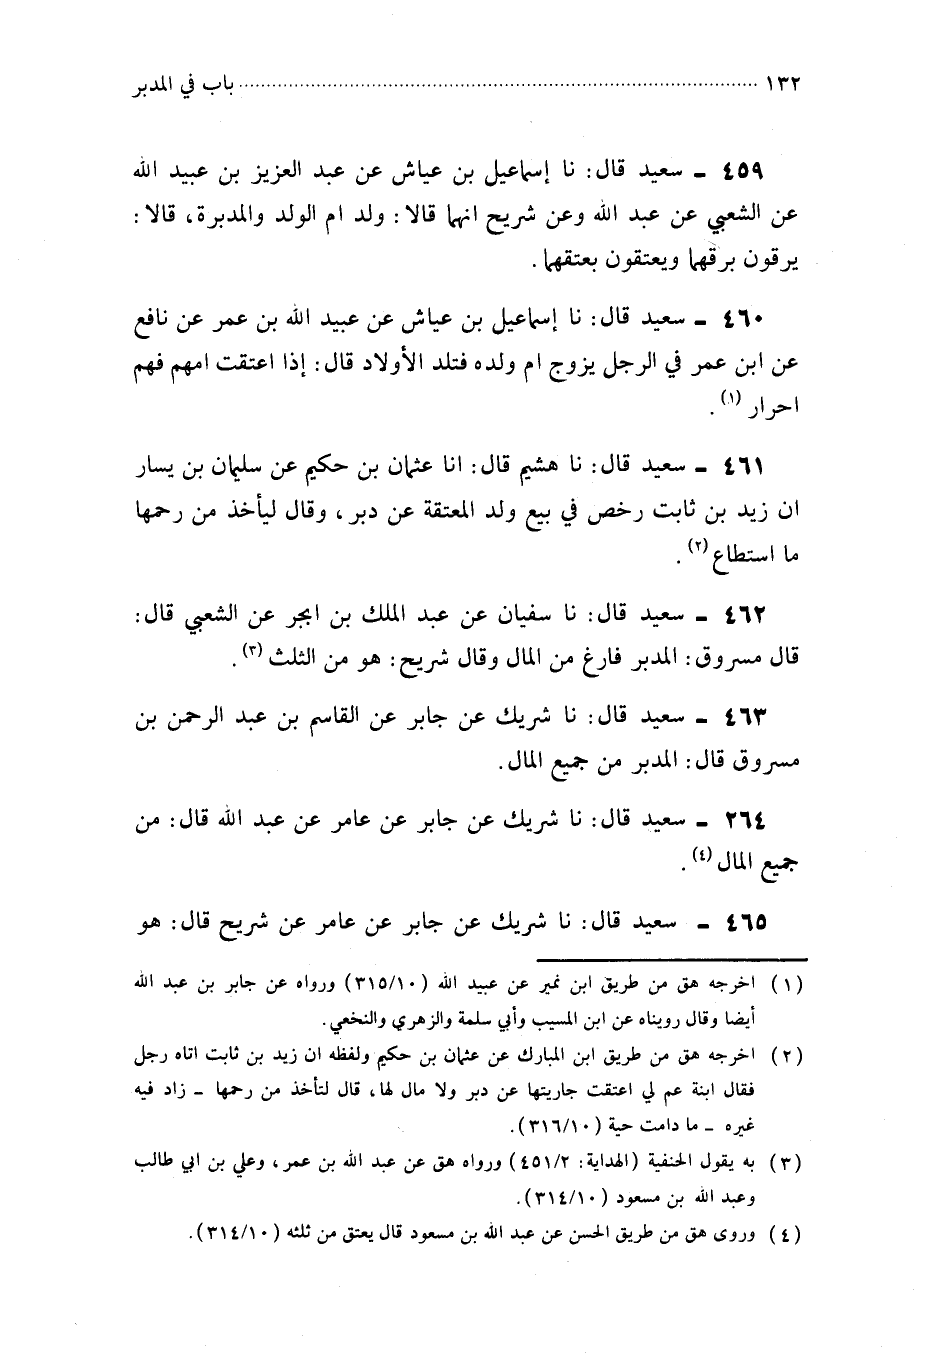 ١٣٢ ........ باب في المدبر
٤٥٩ ـ سعيد قال: نا إسماعيل بن عياش عن عبد العزيز بن عبيد الله
عن الشعبي عن عبد الله وعن شريح انهما قالا: ولد ام الولد والمدبرة، قالا:
يرقون برقهما ويعتقون بعتقهما.
٤٦٠ ـ سعيد قال: نا إسماعيل بن عياش عن عبيد الله بن عمر عن نافع
عن ابن عمر في الرجل يزوج ام ولده فتلد الأولاد قال: إذا اعتقت امهم فهم
احرار (١).
٤٦١ ـ سعيد قال: نا هشيم قال: انا عثمان بن حكيم عن سليمان بن يسار
ان زيد بن ثابت رخص في بيع ولد المعتقة عن دبر، وقال ليأخذ من رحمها
ما استطاع (٢).
٤٦٢ ـ سعيد قال: نا سفيان عن عبد الملك بن ابجر عن الشعبي قال:
قال مسروق: المدبر فارغ من المال وقال شريح: هو من الثلث (٣).
٤٦٣ ـ سعيد قال: نا شريك عن جابر عن القاسم بن عبد الرحمن بن
مسروق قال: المدبر من جميع المال.
٢٦٤ ـ سعيد قال: نا شريك عن جابر عن عامر عن عبد الله قال: من
جميع المال (٤).
٤٦٥ ـ سعيد قال: نا شريك عن جابر عن عامر عن شريح قال: هو
(١) اخرجه هق من طريق ابن نمير عن عبيد الله (٣١٥/١٠) ورواه عن جابر بن عبد الله
أيضا وقال رويناه عن ابن المسيب وأبي سلمة والزهري والنخعي.
(٢) اخرجه هق من طريق ابن المبارك عن عثمان بن حكيم ولفظه ان زيد بن ثابت اتاه رجل
فقال ابنة عم لي اعتقت جاريتها عن دبر ولا مال لها، قال لتأخذ من رحمها ـ زاد فيه
غيره ـ ما دامت حية (٣١٦/١٠).
(٣) به يقول الحنفية (الهداية: ٤٥١/٢) ورواه هق عن عبد الله بن عمر، وعلي بن ابي طالب
وعبد الله بن مسعود (٣١٤/١٠).
(٤) وروى هق من طريق الحسن عن عبد الله بن مسعود قال يعتق من ثلثه (٣١٤/١٠).